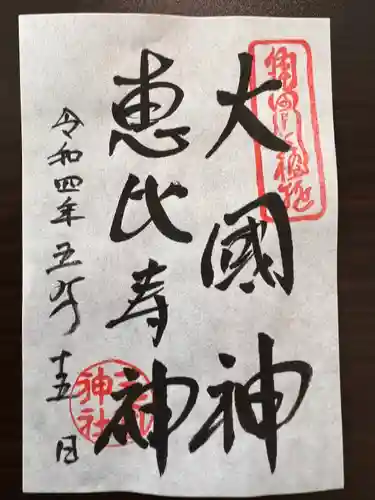 大國神
恵比寿神
令和四年五月十五日
神社